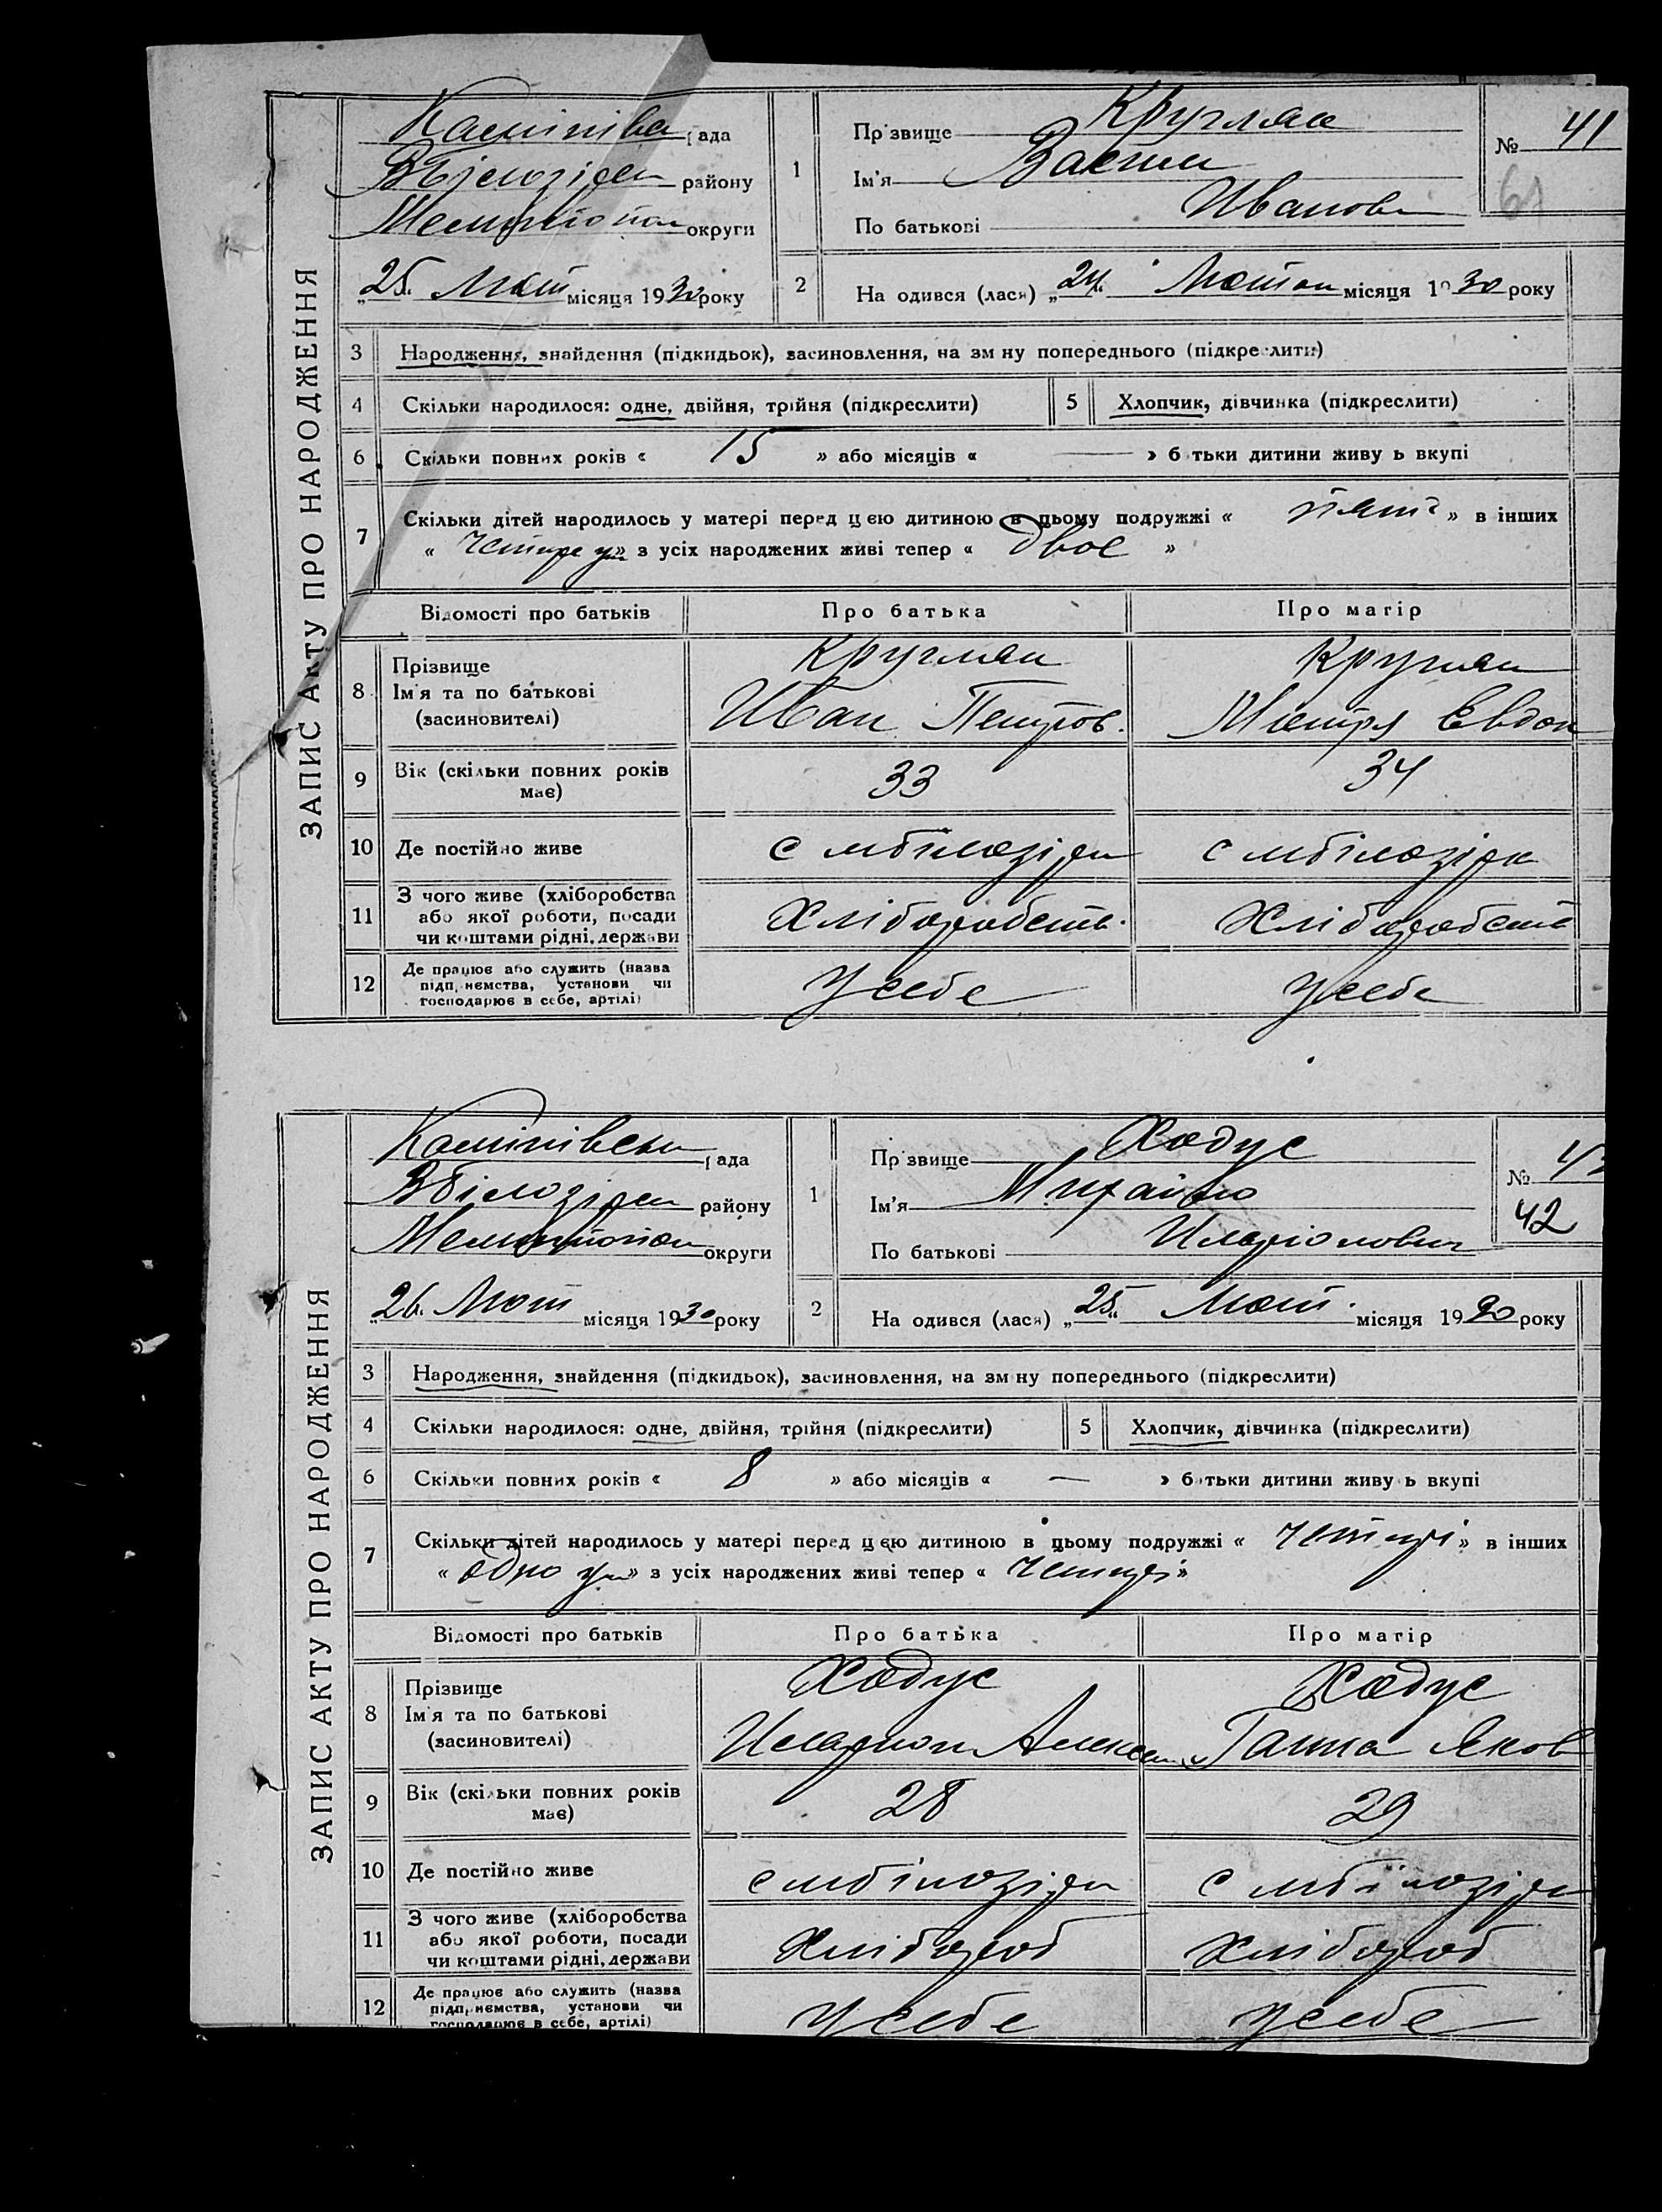 ЗАПИС АКТУ ПРО НАРОДЖЕННЯ
рада
району
округи
„25“ Лют місяця 1930 року
1 Прізвище Кругляк
Ім'я Васил
По батькові Иванов
№ 41
61
2 Народився (лася) „24“ місяця 1930 року
3 Народження, знайдення (підкидьок), засиновлення, на зміну попереднього (підкреслити)
4 Скільки народилося: одне, двійня, трійня (підкреслити) 5 Хлопчик, дівчинка (підкреслити)
6 Скільки повних років « 15 » або місяців « — » батьки дитини живуть вкупі
7 Скільки дітей народилось у матері перед цією дитиною в цьому подружжі « пять » в інших
« » з усіх народжених живі тепер « двое »
Відомості про батьків Про батька Про матір
8 Прізвище Кругляк Кругляк
Ім'я та по батькові Иван Петров. Евдок
(засиновителі)
9 Вік (скільки повних років має) 33 34
10 Де постійно живе
11 З чого живе (хліборобства Хліборобств. Хліборобств
або якої роботи, посади
чи коштами рідні, держави
12 Де працює або служить (назва у себе у себе
підприємства, установи чи
господарює в себе, артілі)
ЗАПИС АКТУ ПРО НАРОДЖЕННЯ
рада
району
округи
„26“ Лют місяця 1930 року
1 Прізвище Ходус
Ім'я Михайло
По батькові Иларіонович
№
42
2 Народився (лася) „25“ Лют. місяця 19 року
3 Народження, знайдення (підкидьок), засиновлення, на зміну попереднього (підкреслити)
4 Скільки народилося: одне, двійня, трійня (підкреслити) 5 Хлопчик, дівчинка (підкреслити)
6 Скільки повних років « 8 » або місяців « — » батьки дитини живуть вкупі
7 Скільки дітей народилось у матері перед цією дитиною в цьому подружжі « четирі » в інших
« одно » з усіх народжених живі тепер « четирі »
Відомості про батьків Про батька Про матір
8 Прізвище Ходус Ходус
Ім'я та по батькові Иларион Алексе Ганна Яков
(засиновителі)
9 Вік (скільки повних років має) 28 29
10 Де постійно живе
11 З чого живе (хліборобства Хлібороб Хлібороб
або якої роботи, посади
чи коштами рідні, держави
12 Де працює або служить (назва у себе у себе
підприємства, установи чи
господарює в себе, артілі)